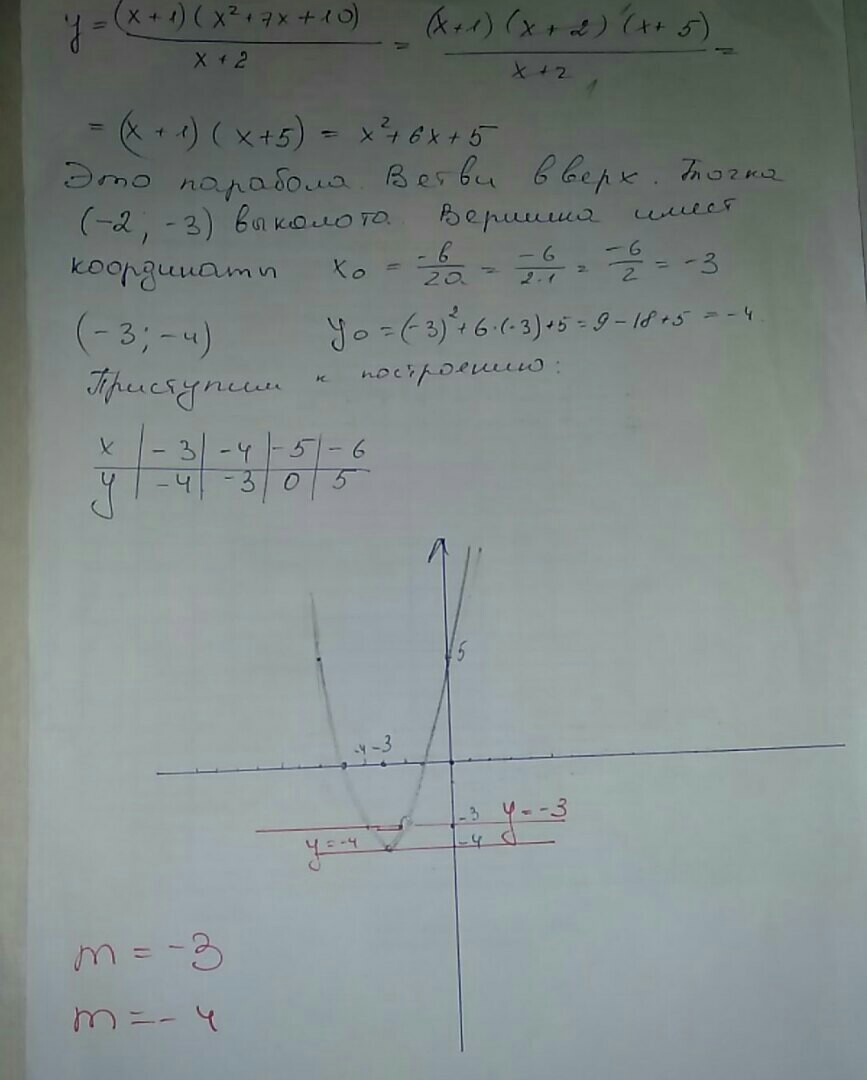 y = (x+1)(x²+7x+10)/(x+2) = (x+1)(x+2)(x+5)/(x+2) =
= (x+1)(x+5) = x²+6x+5
Это парабола. Ветви вверх. Точка
(-2; -3) выколота. Вершина имеет
координаты x₀ = -b/2a = -6/2·1 = -6/2 = -3
(-3; -4) y₀ = (-3)²+6·(-3)+5 = 9-18+5 = -4
Приступим к построению:
x | -3 | -4 | -5 | -6
y | -4 | -3 | 0 | 5
5
-4 -3
-3 y = -3
y = -4 -4
m = -3
m = -4